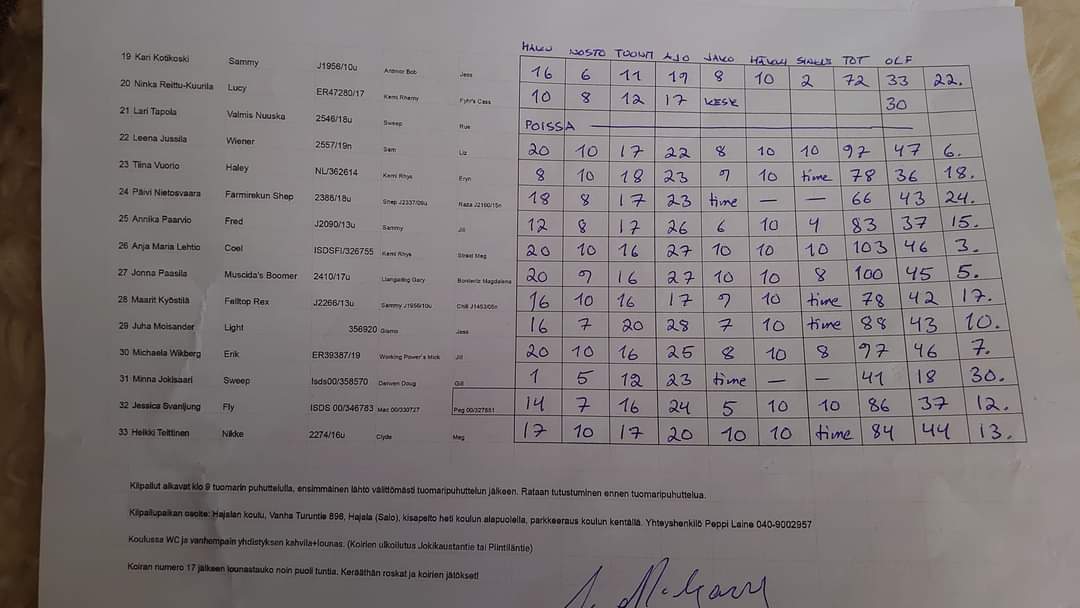 HAKU NOSTO TUONTI AJO JAKO HÄKKI SINKUS TOT OLF
19 Kari Kotikoski Sammy J1956/10u Ardmor Bob Jess 16 6 11 19 8 10 2 72 33 22.
20 Ninka Reittu-Kuurila Lucy ER47280/17 Kemi Rhemy Fyhr's Cass 10 8 12 17 KESK 30
21 Lari Tapola Valmis Nuuska 2546/18u Sweep Rue POISSA
22 Leena Jussila Wiener 2557/19n Sam Liz 20 10 17 22 8 10 10 97 47 6.
23 Tiina Vuorio Haley NL/362614 Kemi Rhys Eryn 8 10 18 23 9 10 time 78 36 18.
24 Päivi Nietosvaara Farmirekun Shep 2388/18u Shep J2337/09u Raza J2160/15n 18 8 17 23 time — — 66 43 24.
25 Annika Paarvio Fred J2090/13u Sammy Jill 12 8 17 26 6 10 4 83 37 15.
26 Anja Maria Lehtio Coel ISDSFI/326755 Kemi Rhys Straid Meg 20 10 16 27 10 10 10 103 46 3.
27 Jonna Paasila Muscida's Boomer 2410/17u Llangwling Gary Borderliz Magdalena 20 9 16 27 10 10 8 100 45 5.
28 Maarit Kyöstilä Felltop Rex J2266/13u Sammy J1956/10u Chill J1453/05n 16 10 16 17 9 10 time 78 42 17.
29 Juha Moisander Light 356920 Glamo Jess 16 7 20 28 7 10 time 88 43 10.
30 Michaela Wikberg Erik ER39387/19 Working Power's Mick Jill 20 10 16 25 8 10 8 97 46 7.
31 Minna Jokisaari Sweep Isds00/358570 Derwen Doug Gill 1 5 12 23 time — — 41 18 30.
32 Jessica Svanljung Fly ISDS 00/346783 Mac 00/330727 Peg 00/327851 14 7 16 24 5 10 10 86 37 12.
33 Heikki Teittinen Nikke 2274/16u Clyde Meg 17 10 17 20 10 10 time 84 44 13.
Kilpailut alkavat klo 9 tuomarin puhuttelulla, ensimmäinen lähtö välittömästi tuomaripuhuttelun jälkeen. Rataan tutustuminen ennen tuomaripuhuttelua.
Kilpailupaikan osoite: Hajalan koulu, Vanha Turuntie 896, Hajala (Salo), kisapelto heti koulun alapuolella, parkkeeraus koulun kentällä. Yhteyshenkilö Peppi Laine 040-9002957
Koulussa WC ja vanhempain yhdistyksen kahvila+lounas. (Koirien ulkoilutus Jokikaustantie tai Piintiläntie)
Koiran numero 17 jälkeen lounastauko noin puoli tuntia. Kerääthän roskat ja koirien jätökset!